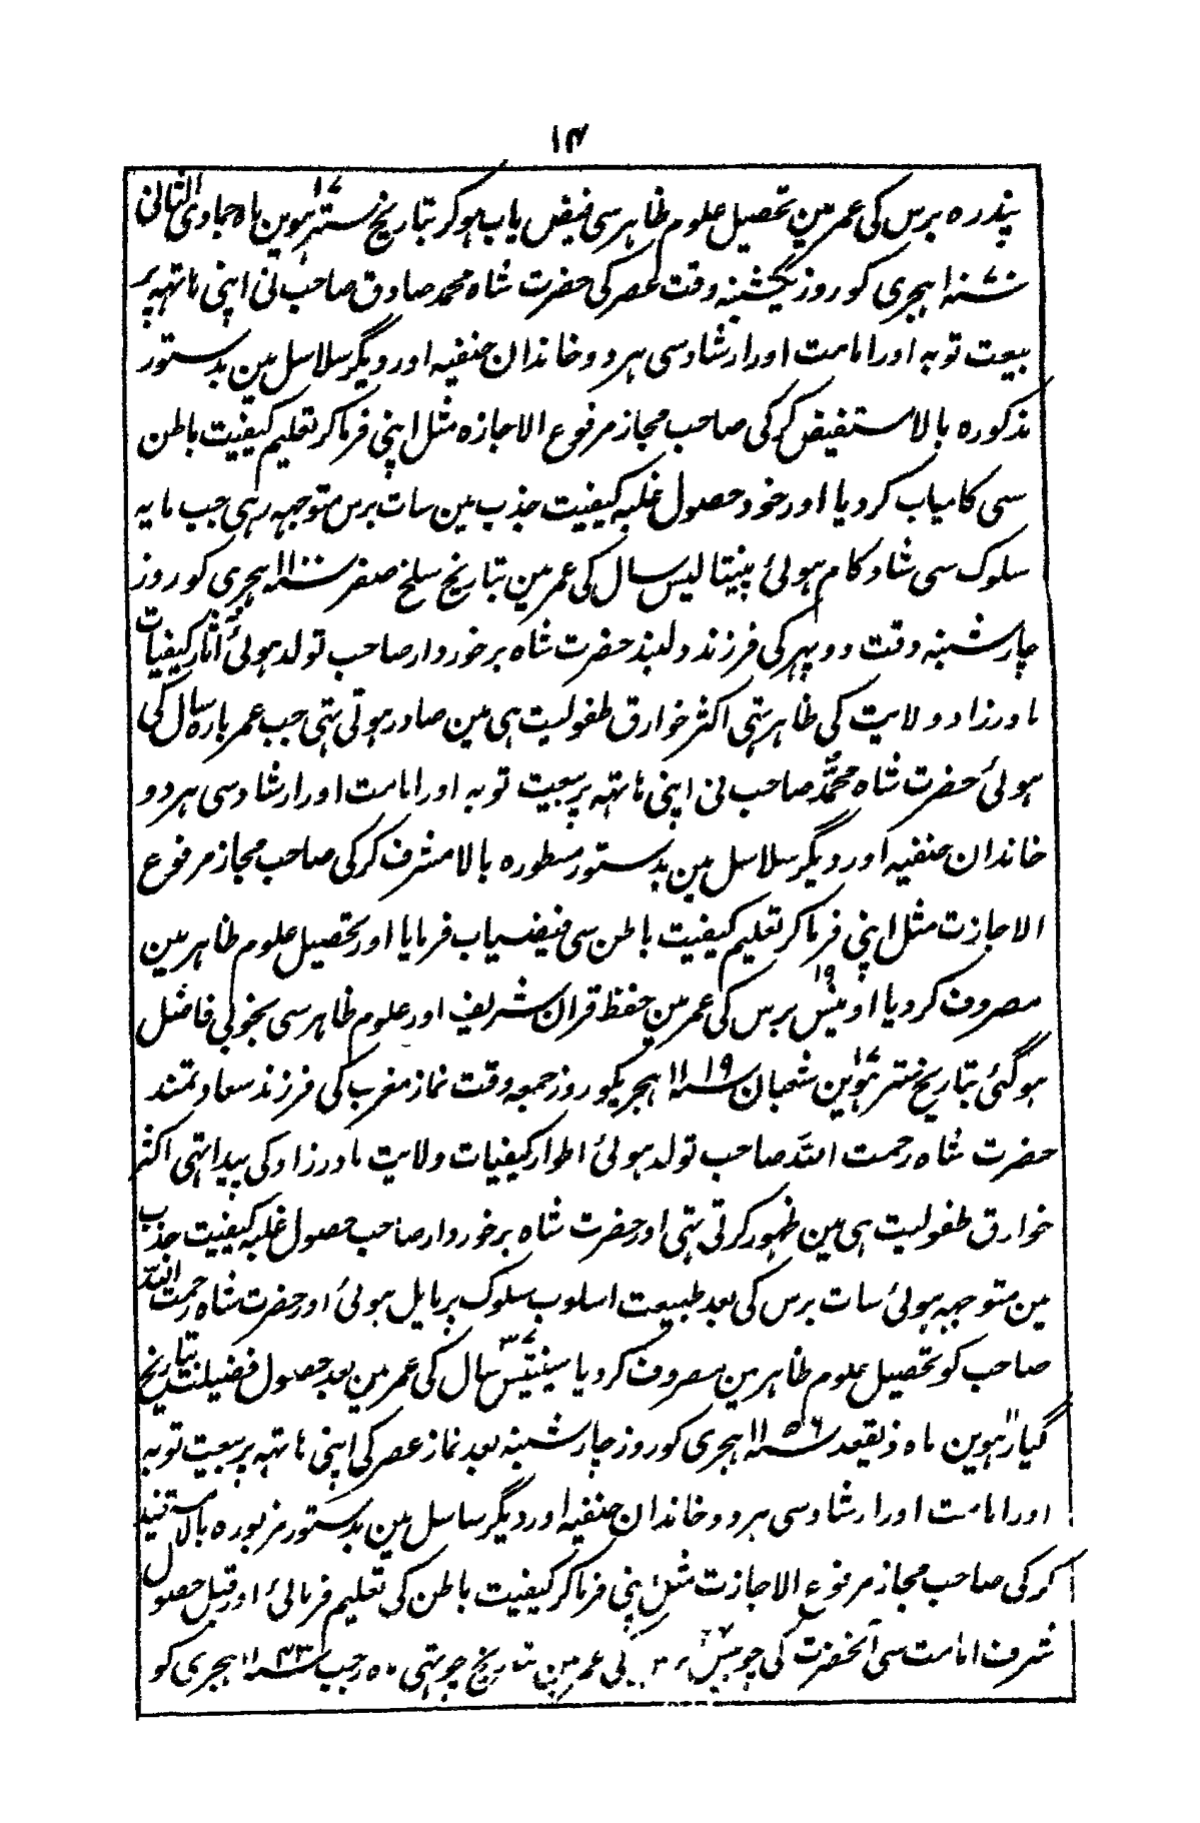 ۱۴
پندرہ برس کی عمر مین تحصیل علوم ظاہر سی فیض یاب ہوکر بتاریخ ستر ہوین ۱۷ ماہ جمادی الثانی
سنہ ۱۰۷۰ ہجری کو روز یکشنبہ وقت عصر کی حضرت شاہ محمد صادق صاحب نی اپنی ہاتہہ پر
بیعت توبہ اور امامت اور ارشاد سی ہر دو خاندان حنفیہ اور دیگر سلاسل مین بدستور
مذکورہ بالا مستفیض کرکی صاحب مجاز مرفوع الاجازہ مثل اپنی فرماکر تعلیم کیفیت باطن
سی کامیاب کردیا اور خود حصول غلبہ کیفیت جذب مین سات برس متوجہہ رہی جب مایہ
سلوک سی شادکام ہوئی پینتالیس سال کی عمر مین بتاریخ سلخ صفر سنہ ۱۱۰۰ ہجری کو روز
چارشنبہ وقت دوپہر کی فرزند دلبند حضرت شاہ برخوردار صاحب تولد ہوئی آثار کیفیات
مادرزاد ولایت کی ظاہر تہی اکثر خوارق طفولیت ہی مین صادر ہوتی تہی جب عمر بارہ سال کی
ہوئی حضرت شاہ محمد صاحب نی اپنی ہاتہہ پر بیعت توبہ اور امامت اور ارشاد سی ہر دو
خاندان حنفیہ اور دیگر سلاسل مین بدستور مسطورہ بالا مشرف کرکی صاحب مجاز مرفوع
الاجازت مثل اپنی فرماکر تعلیم کیفیت باطن سی فیضیاب فرمایا اور تحصیل علوم ظاہر مین
مصروف کردیا اونیس ۱۹ برس کی عمر مین حفظ قران شریف اور علوم ظاہر سی بخوبی فاضل
ہوگئی بتاریخ ستر ہوین ۱۷ شعبان سنہ ۱۱۱۹ ہجریکو روز جمعہ وقت نماز مغرب کی فرزند سعادتمند
حضرت شاہ رحمت اللہ صاحب تولد ہوئی اطوار کیفیات ولایت مادرزاد کی پیدا تہی اکثر
خوارق طفولیت ہی مین ظہور کرتی تہی اور حضرت شاہ برخوردار صاحب حصول غلبہ کیفیت جذب
مین متوجہہ ہوئی سات برس کی بعد طبیعت اسلوب سلوک پر مایل ہوئی اور حضرت شاہ رحمت اللہ
صاحب کو تحصیل علوم ظاہر مین مصروف کردیا سینتیس ۳۷ سال کی عمر مین بعد حصول فضیلت بتاریخ
گیارہوین ۱۱ ماہ ذیقعد سنہ ۱۱۵۶ ہجری کو روز چارشنبہ بعد نماز عصر کی اپنی ہاتہہ پر بیعت توبہ
اور امامت اور ارشاد سی ہر دو خاندان حنفیہ اور دیگر سلاسل مین بدستور مزبورہ بالا
کرکی صاحب مجاز مرفوع الاجازت مثل اپنی فرماکر کیفیت باطن کی تعلیم فرمائی اور قبل حصول
شرف امامت سی آنحضرت کی چوبیس ۲۴ کی عمر مین بتاریخ چوتہی ماہ رجب سنہ ۱۱۴۳ ہجری کو